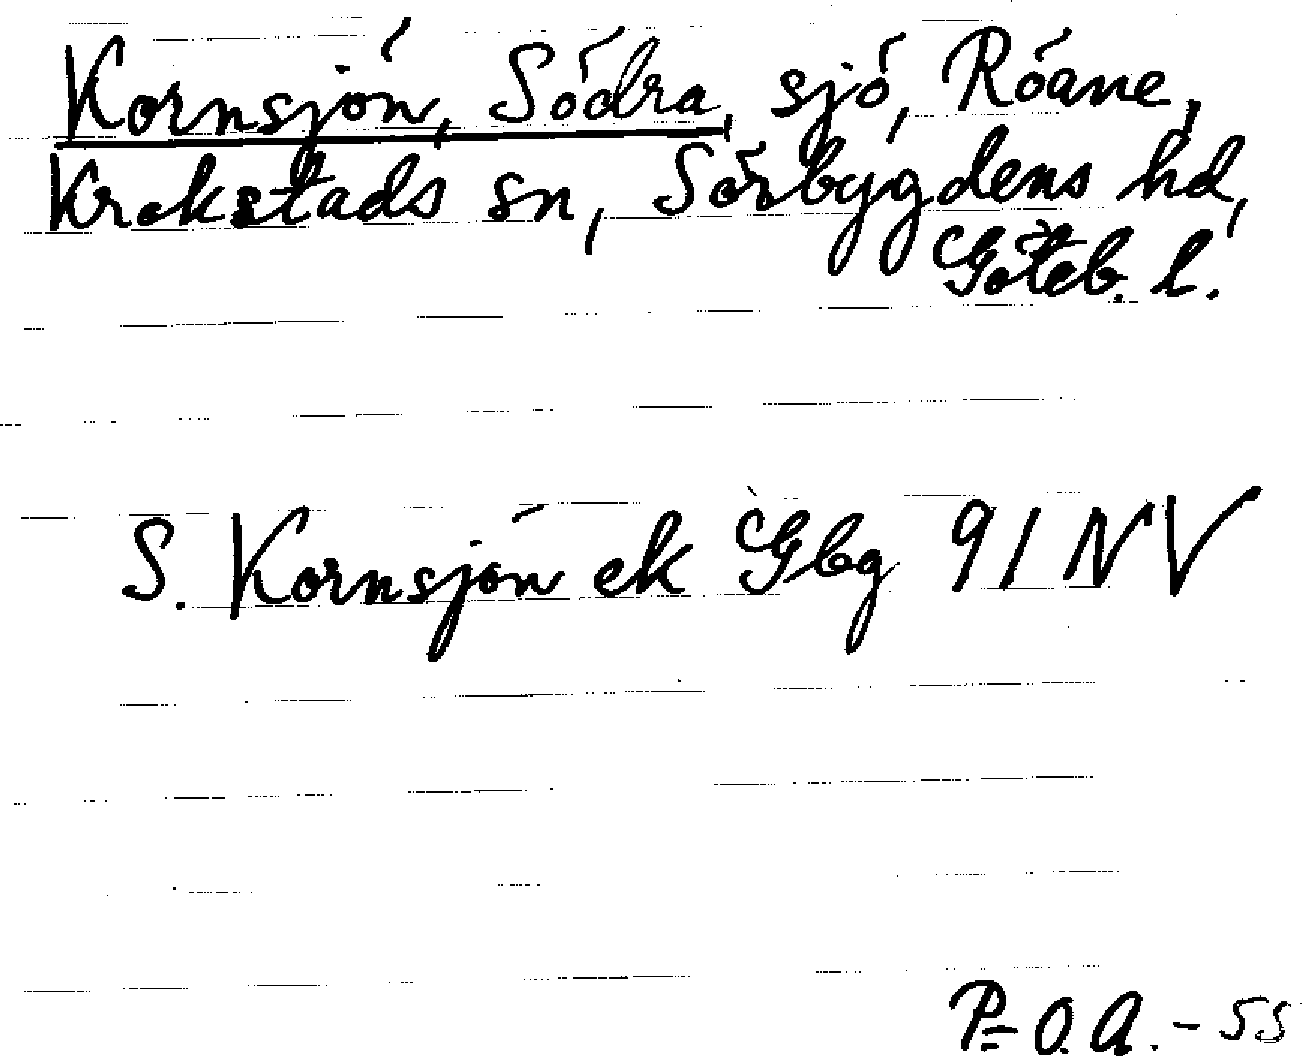 Kornsjön, Södra, sjö, Röane,
Krokstads sn, Sörbygdens hd,
Göteb. l.
S. Kornsjön ek Gbg 91 NV
P-O.A.-55